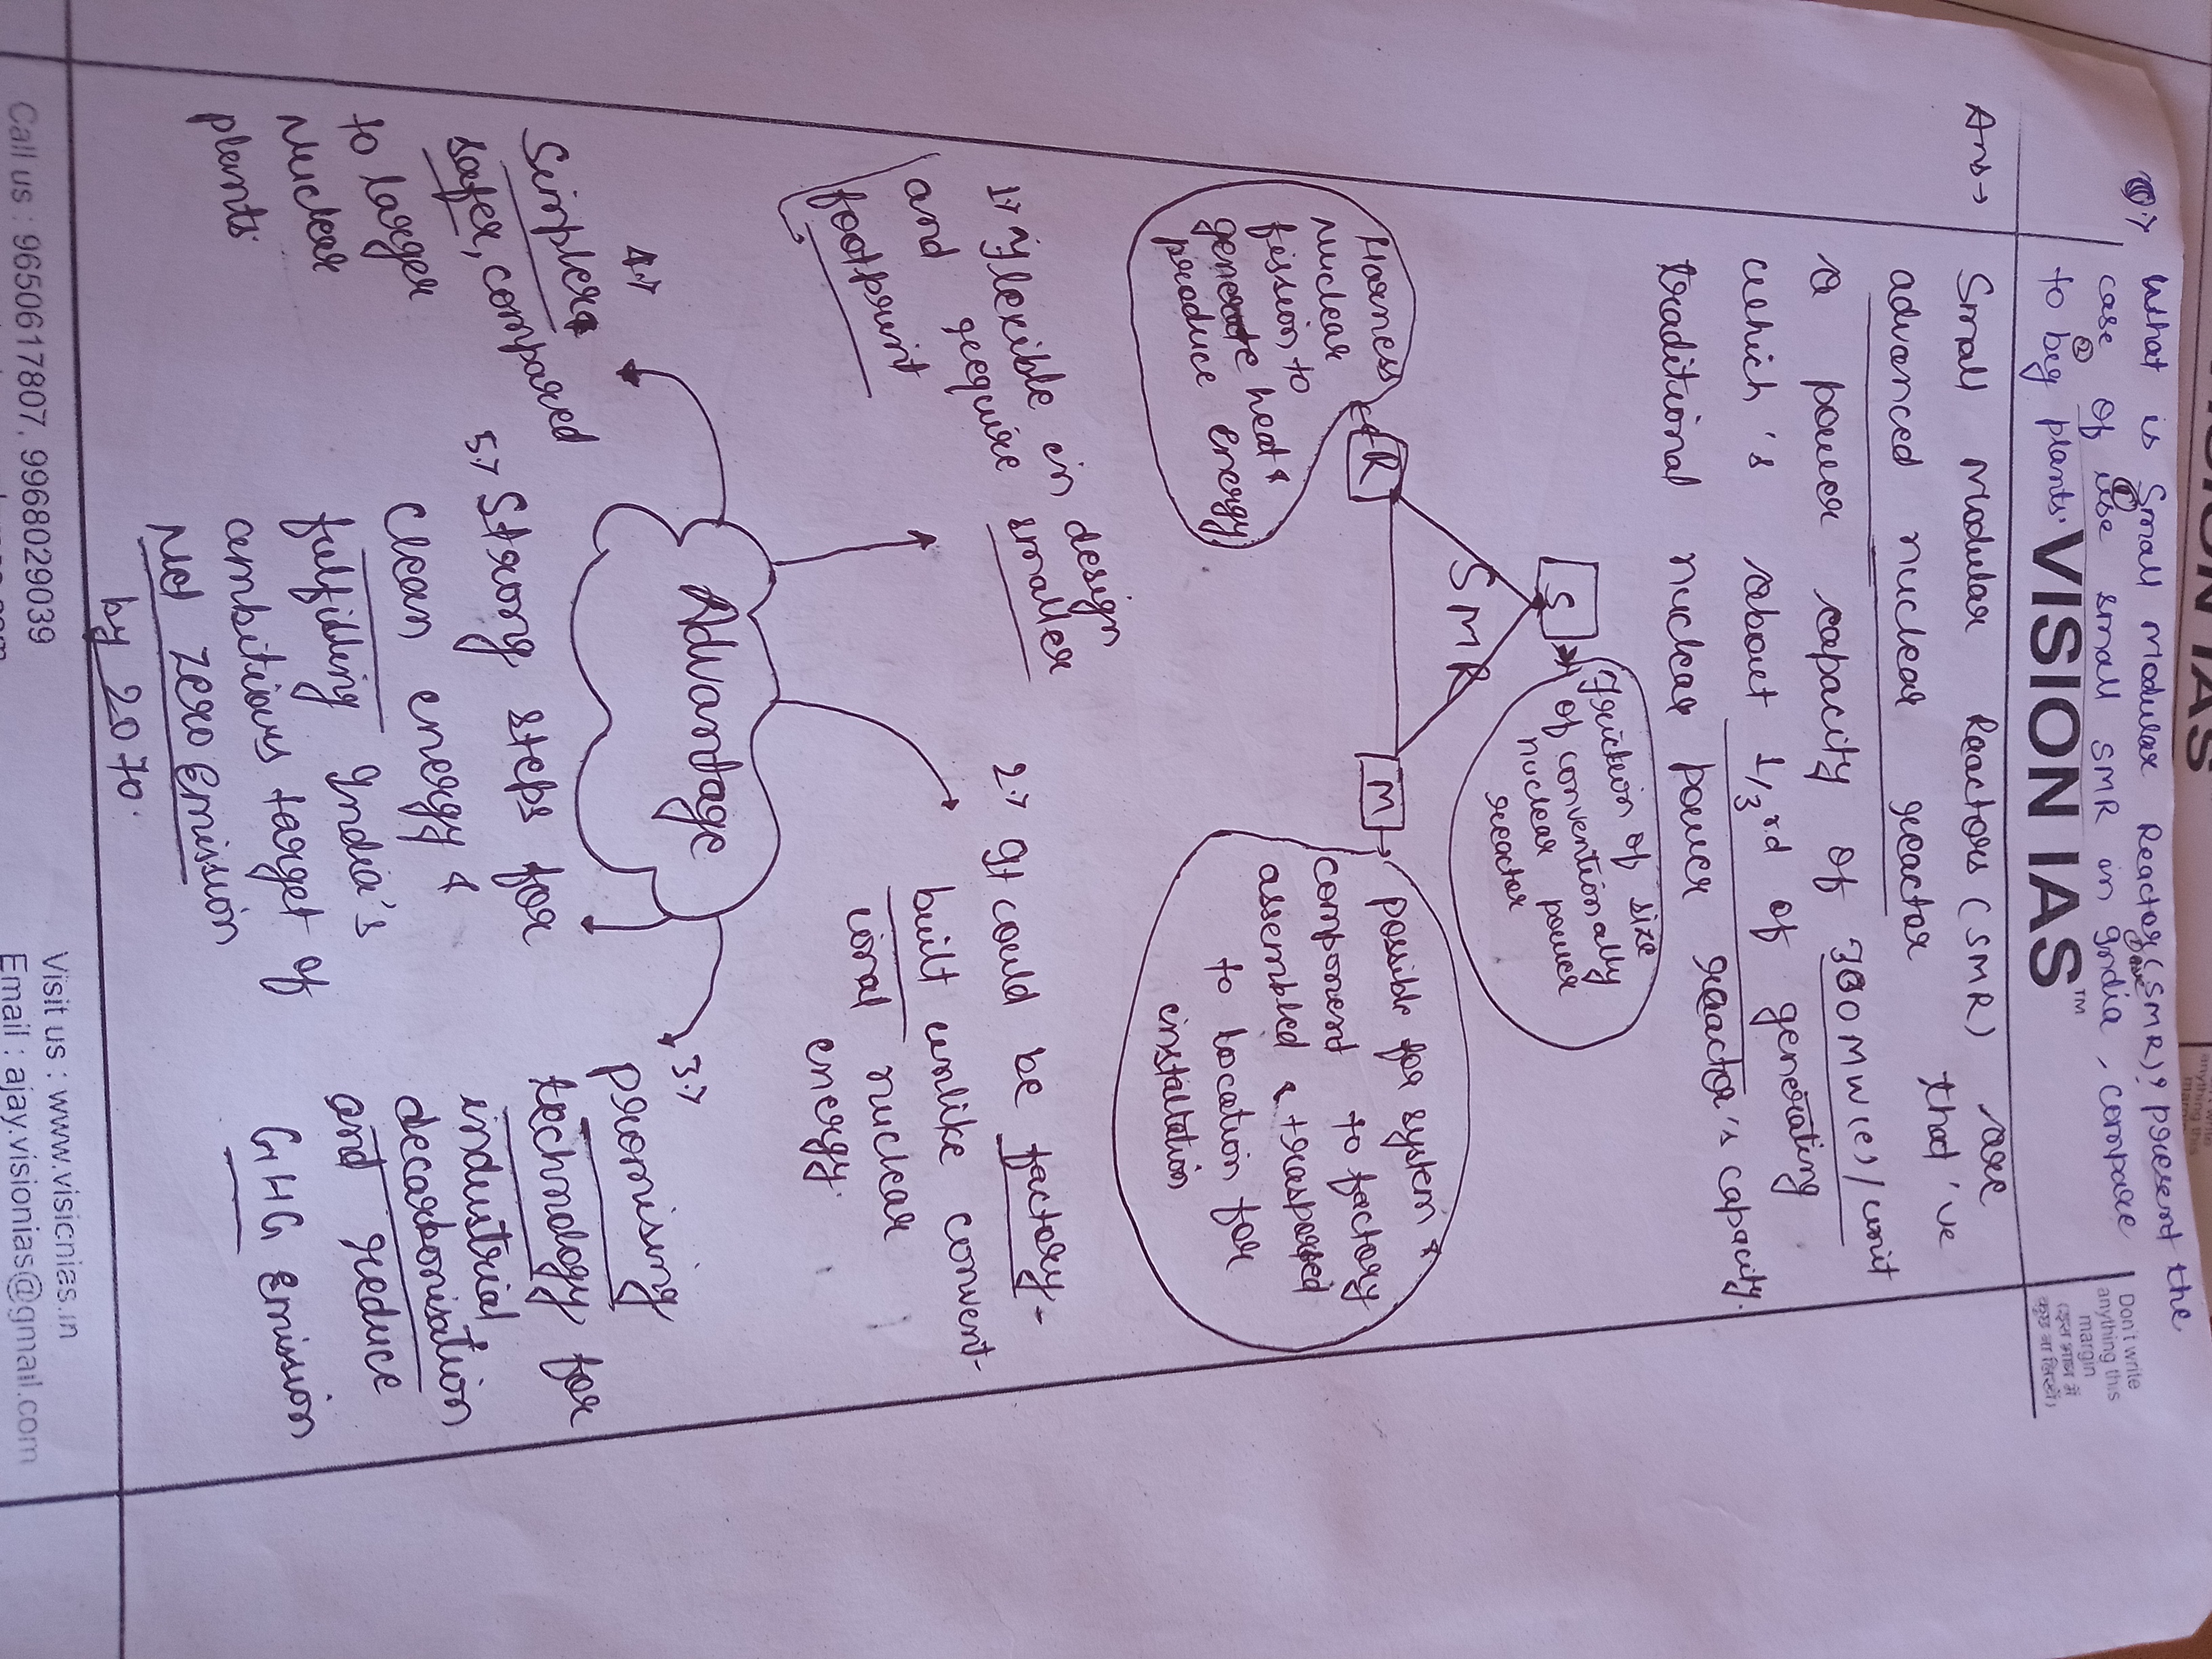 VISION IAS
Q.> What is Small Modular Reactor (SMR)? present the
case of use small SMR in India, compare
to big plants.
VISION IAS™
Don't write
anything this
margin
Ans→ Small Modular Reactors (SMR) are
advanced nuclear reactor that've
a power capacity of 300MW(e)/unit
which's about 1/3rd of generating
traditional nuclear power reactor's capacity.
S
Friction of size
of conventionally
nuclear power
reactor
SMR
R
Harness
nuclear
fission to
generate heat &
produce energy
M
possible for system &
component to factory
assembled & trasported
to location for
installation
1.> flexible in design
and require smaller
footprint
2.> It could be factory-
built unlike convent-
ional nuclear
energy.
Advantage
3.>
promising
technology for
industrial
decarbonisation
and reduce
GHG Emission
4.>
Simpler &
safer, compared
to larger
nuclear
plants.
5.> Strong steps for
clean energy &
fulfilling India's
ambitious target of
Net Zero Emission
by 2070.
Call us : 9650617807, 9968029039
Visit us : www.visionias.in
Email : ajay.visionias@gmail.com